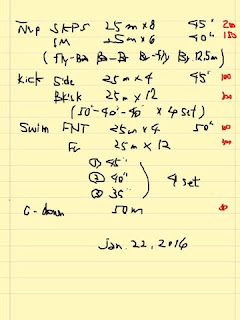 W-up SKPS 25m×8 45" 200
IM 25m×6 40" 150
(Fly-Ba Ba-Br Br-Fly By 12.5m)
Kick Side 25m×4 45" 100
25m×12 300
(50"-40"-40" × 4 set)
Swim FNT 25m×4 50" 100
Fr 25m×12 300
① 45"
② 40" 4 set
③ 35"
C-down 50m 50
Jan. 22, 2016